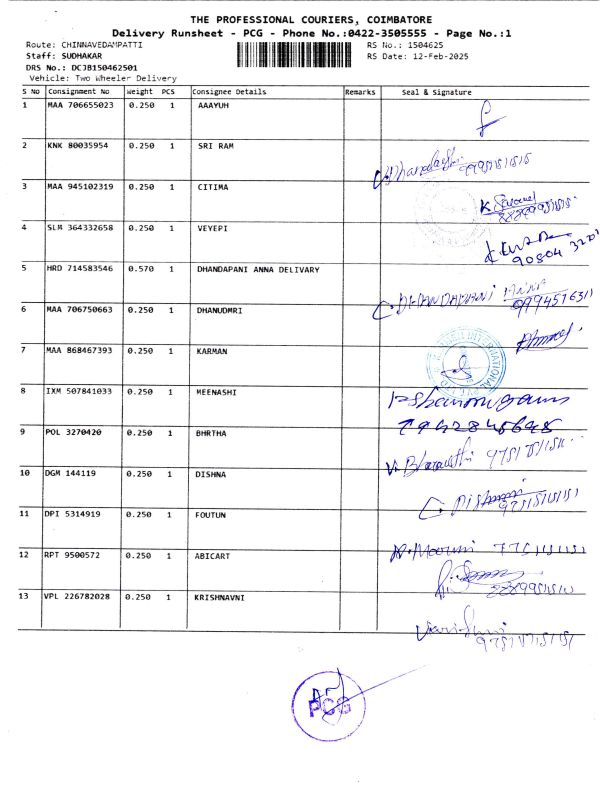 THE PROFESSIONAL COURIERS, COIMBATORE
Delivery Runsheet - PCG - Phone No.:0422-3505555 - Page No.:1
Route: CHINNAVEDAMPATTI RS No.: 1504625
Staff: SUDHAKAR RS Date: 12-Feb-2025
DRS No.: DCJB150462501
Vehicle: Two Wheeler Delivery
S No Consignment No Weight PCS Consignee Details Remarks Seal & Signature
1 MAA 706655023 0.250 1 AAAYUH
2 KNK 80035954 0.250 1 SRI RAM
3 MAA 945102319 0.250 1 CITIMA
4 SLM 364332658 0.250 1 VEYEPI
90804 3201
5 HRD 714583546 0.570 1 DHANDAPANI ANNA DELIVARY
9994576311
6 MAA 706750663 0.250 1 DHANUDMRI
7 MAA 868467393 0.250 1 KARMAN
8 IXM 507841033 0.250 1 MEENASHI
9 POL 3270420 0.250 1 BHRTHA
10 DGM 144119 0.250 1 DISHNA
11 DPI 5314919 0.250 1 FOUTUN
12 RPT 9500572 0.250 1 ABICART
13 VPL 226782028 0.250 1 KRISHNAVNI
PCG